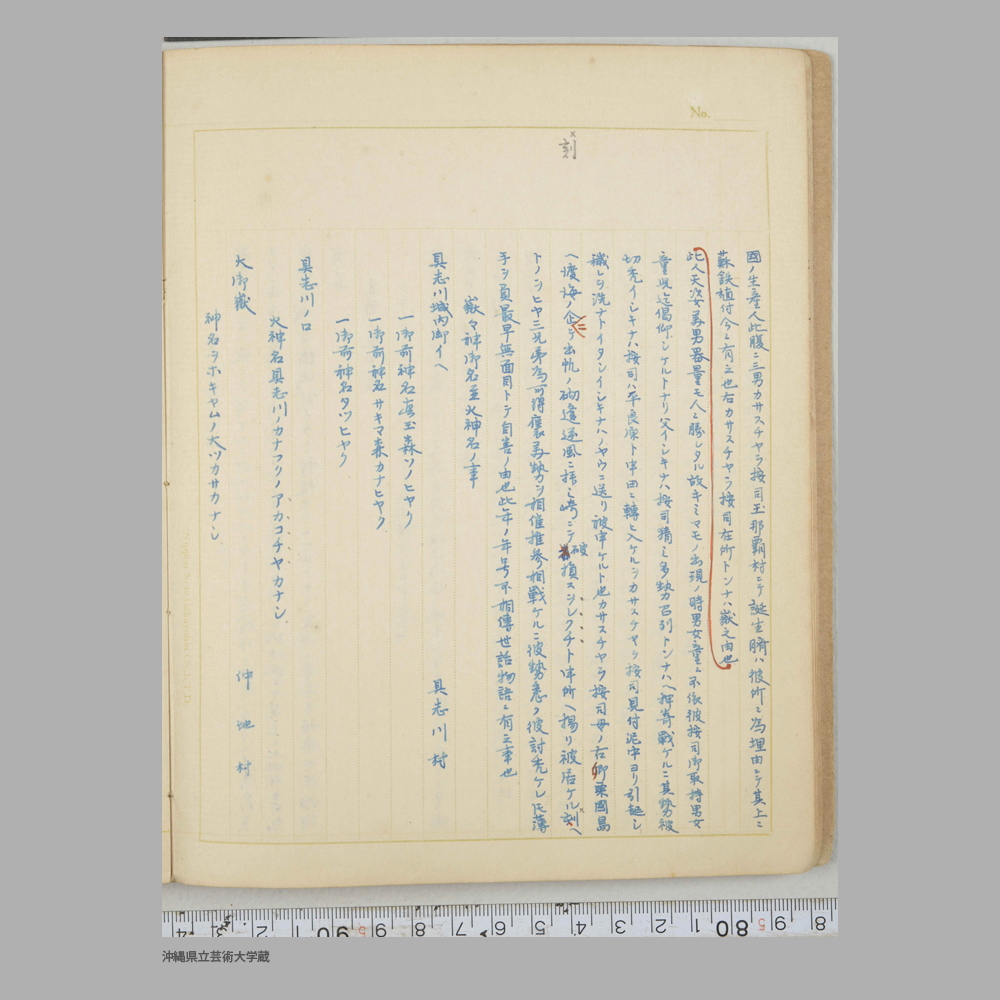 No.
刻
國ノ生産人此腹ニ三男カサスチヤラ按司玉那覇村ニテ誕生臍ハ彼所ニ為埋由ニテ其上ニ
蘇鉄植付今ニ有之也右カサスチヤラ按司在所トンナハ嶽之由也
此人天次女勇男器量モ人ニ勝レタル故キミマモノ出現ノ時男女童ニ不依彼按司御取持男女
童児迄偈仰シケルトナリ父イシキナハ按司猜ミ多勢力召列トンナハヘ押寄戰ケルニ其勢被
切禿イシキナハ按司ハ平良原ト申田ニ轉ヒ入ケルヲカサスチヤラ按司見付泥中ヨリ引起シ
穢レヲ洗ナトイタシイシキナハノヤウニ送リ被申ケルト也カサスチヤラ按司母ノ右卿粟國島
ヘ渡海ノ企ニテ出帆ノ砌逢逆風ニ拝ミ崎ニテ破損スシレクチト申所ヘ揚リ被居ケル刻ヘ
トノシヒヤ三兄弟為可得褒美勢力ヲ相催推參相戰ケルニ彼勢悉ク彼討禿ケレ圧薄
手ヲ負最早無面目トテ自害ノ由也此年ノ年号不相傳世話物語ニ有之事也
嶽々神御名並火神名ノ事
具志川城内御イヘ 具志川村
一御前神名真玉森ソノヒヤク
一御前神名サキマ森カナヒヤク
一御前神名タツヒヤク
具志川ノロ
火神名具志川ノカナフクノアカコチヤカナシ
大御嶽 仲地村
神名ヲホキヤムノ大ツカサカナシ
沖縄県立芸術大学蔵